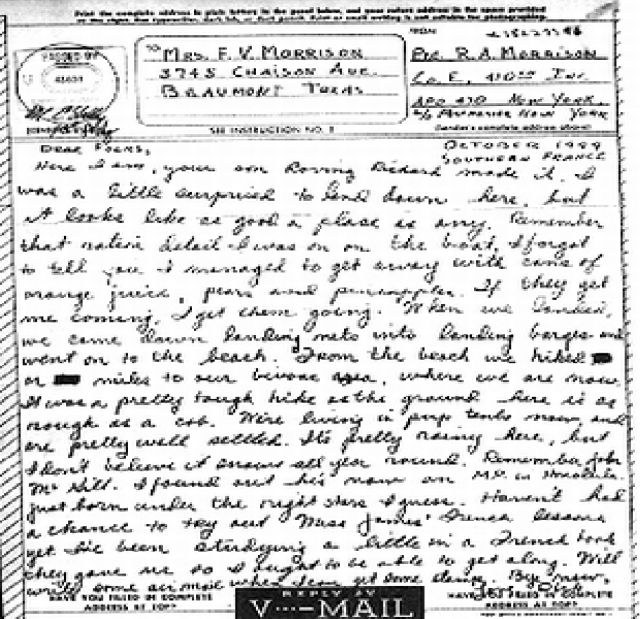 Print the complete address in plain letters in the panel below, and your return address in the space provided
TO
MRS. F. V. MORRISON
3745 CHAISON AVE.
BEAUMONT TEXAS
SEE INSTRUCTION NO. 2
FROM
PVC. R. A. MORRISON
CO. E, 410TH INF.
APO 470 NEW YORK,
NEW YORK
(Sender's complete address above)
DEAR FOLKS,
OCTOBER 1944
SOUTHERN FRANCE
Here I am, your own Roving Richard made it. I
was a little surprised to land down here, but
it looks like as good a place as any. Remember
that ration detail I was on on the boat. I forgot
to tell you I managed to get away with cans of
orange juice, pears and pineapple. If they get
me coming, I get them going. When we landed,
we came down landing nets into landing barges and
went on to the beach. From the beach we hiked
or miles to our bivouac area, where we are now.
It was a pretty tough hike as the ground here is as
rough as a cob. We're living in pup tents now and
are pretty well settled. It's pretty rainy here, but
I don't believe it snows all year round. Remember John
McGill. I found out he's now an M.P. in Honolulu.
Just born under the right stars I guess. Haven't had
a chance to try out Miss James' French lessons
yet. I've been studying a little in a French book
they gave me so I ought to be able to get along. Will
write some air mail when I can get some stamps. Bye now,
HAVE YOU FILLED IN COMPLETE
ADDRESS AT TOP?
REPLY BY
V···—MAIL
HAVE YOU FILLED IN COMPLETE
ADDRESS AT TOP?